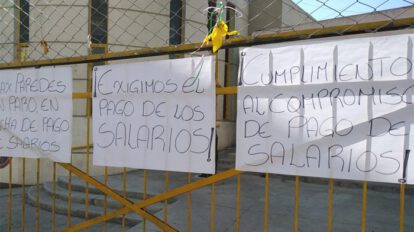 AX PAREDES
N PARO EN
CHA DE PAGO
E SARIOS
¡EXIGIMOS EL
PAGO DE LOS
SALARIOS!
¡CUMPLIMIENTO
AL COMPROMISO
DE PAGO DE
SALARIOS!